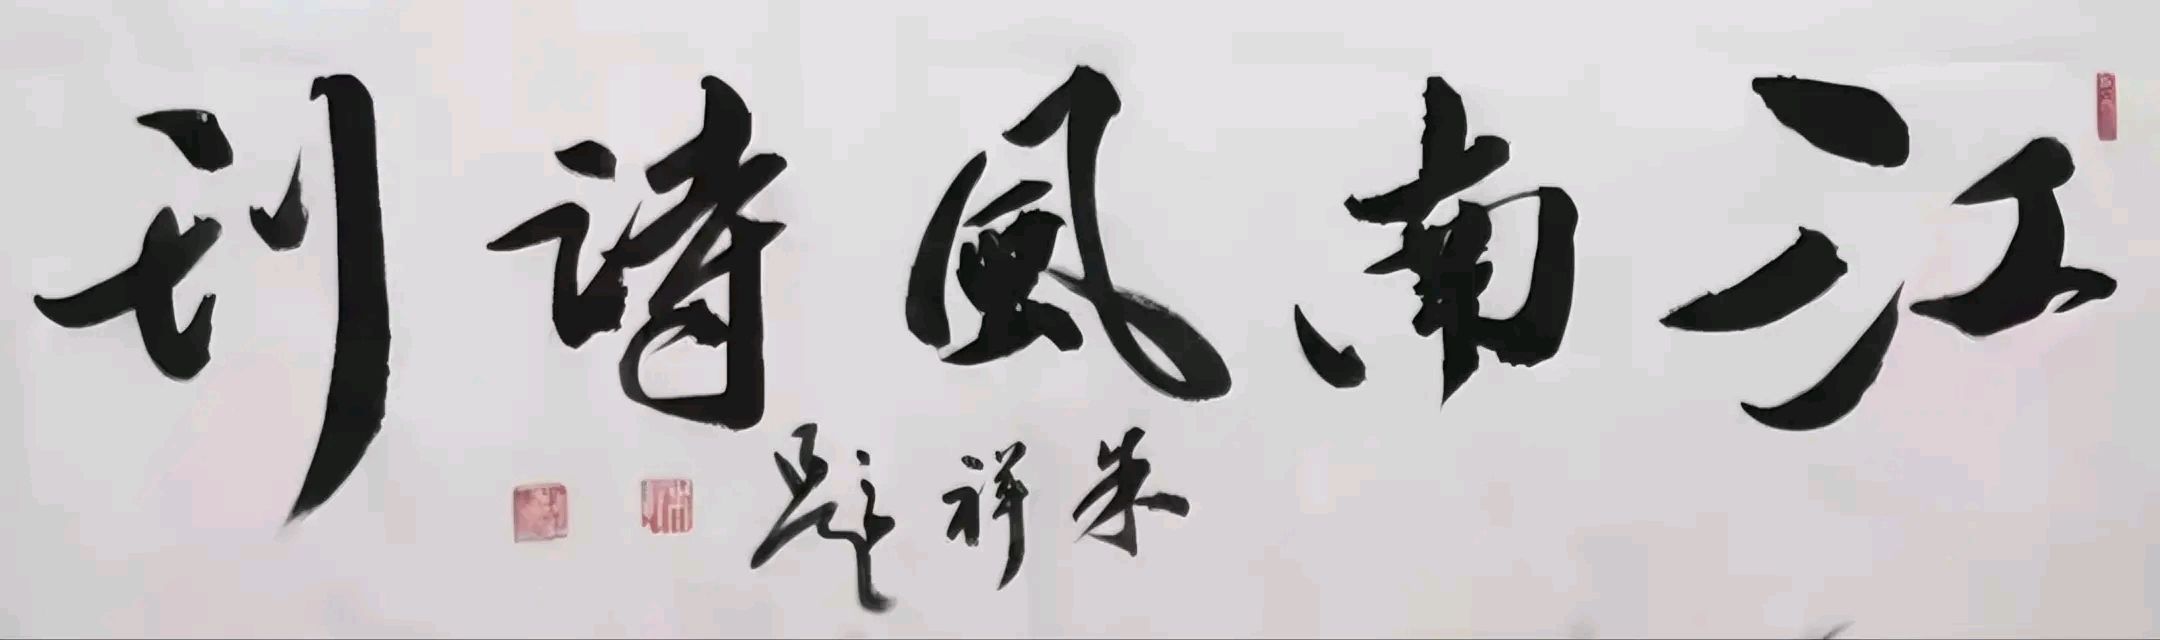 江南風詩刊
朱祥題